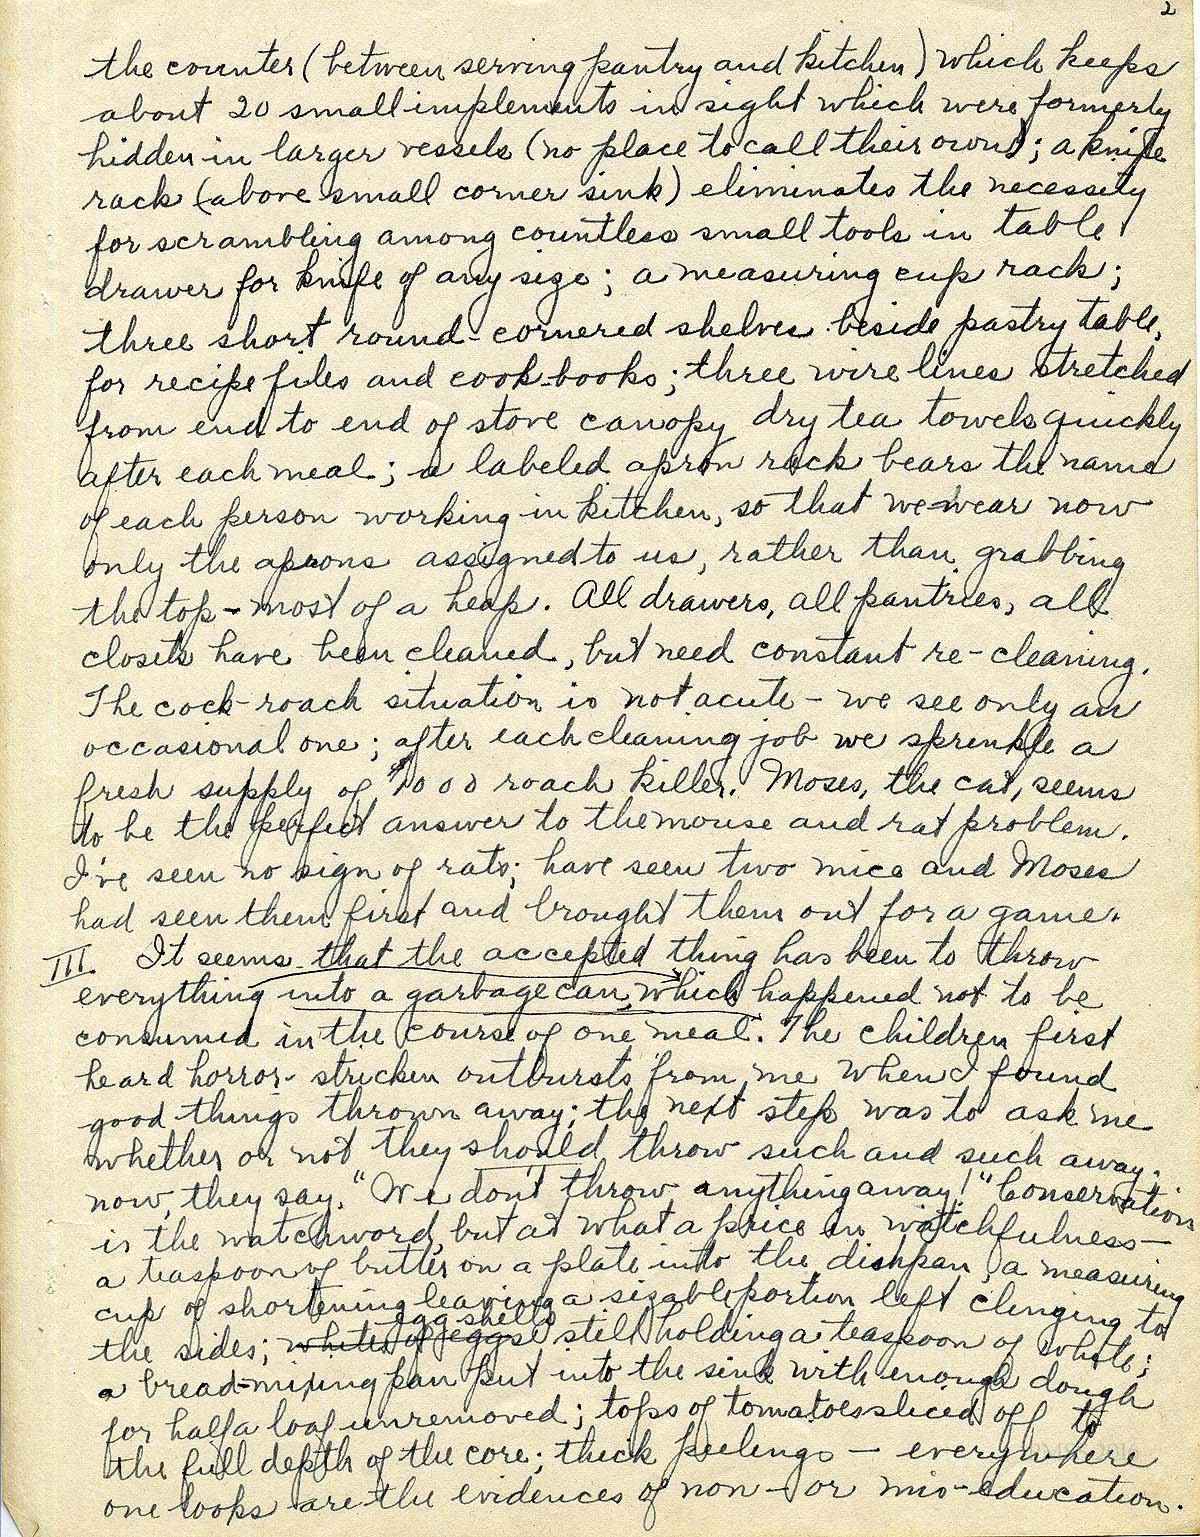 2
the counter (between serving pantry and kitchen) which keeps
about 20 small implements in sight which were formerly
hidden in larger vessels (no place to call their own); a knife
rack (above small corner sink) eliminates the necessity
for scrambling among countless small tools in table
drawer for knife of any size; a measuring cup rack;
three short round-cornered shelves beside pastry table,
for recipe files and cook-books; three wire lines stretched
from end to end of stove canopy dry tea towels quickly
after each meal; a labeled apron rack bears the name
of each person working in kitchen, so that we wear now
only the aprons assigned to us, rather than grabbing
the top-most of a heap. All drawers, all pantries, all
closets have been cleaned, but need constant re-cleaning.
The cock-roach situation is not acute - we see only an
occasional one; after each cleaning job we sprinkle a
fresh supply of 1000 roach killer. Moses, the cat, seems
to be the perfect answer to the mouse and rat problem.
I've seen no sign of rats; have seen two mice and Moses
had seen them first and brought them out for a game.
III It seems that the accepted thing has been to throw
everything into a garbage can, which happened not to be
consumed in the course of one meal. The children first
heard horror-stricken outbursts from me when I found
good things thrown away; the next step was to ask me
whether or not they should throw such and such away;
now, they say, "We don't throw anything away!" Conservation
is the watchword, but at what a price in watchfulness -
a teaspoon of butter on a plate into the dishpan, a measuring
cup of shortening leaving a sizable portion left clinging to
the sides; whites of eggs egg shells still holding a teaspoon of white;
a bread-mixing pan put into the sink with enough dough
for half a loaf unremoved; tops of tomatoes sliced off to
the full depth of the core; thick peelings - everywhere
one looks are the evidences of non- or mis-education.